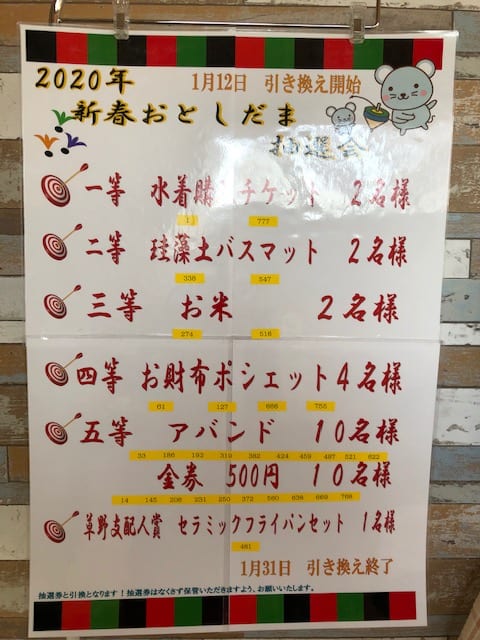 2020年
1月12日 引き換え開始
新春おとしだま
抽選会
一等 水着購 チケット 2名様
1 777
二等 珪藻土バスマット 2名様
338 547
三等 お米 2名様
274 516
四等 お財布ポシェット4名様
61 127 666 755
五等 アバンド 10名様
33 186 192 319 382 424 459 487 521 622
金券 500円 10名様
14 145 206 231 250 372 560 638 669 768
草野支配人賞 セラミックフライパンセット 1名様
461
1月31日 引き換え終了
抽選券と引換となります!抽選券はなくさず保管いただきますよう、お願いします。